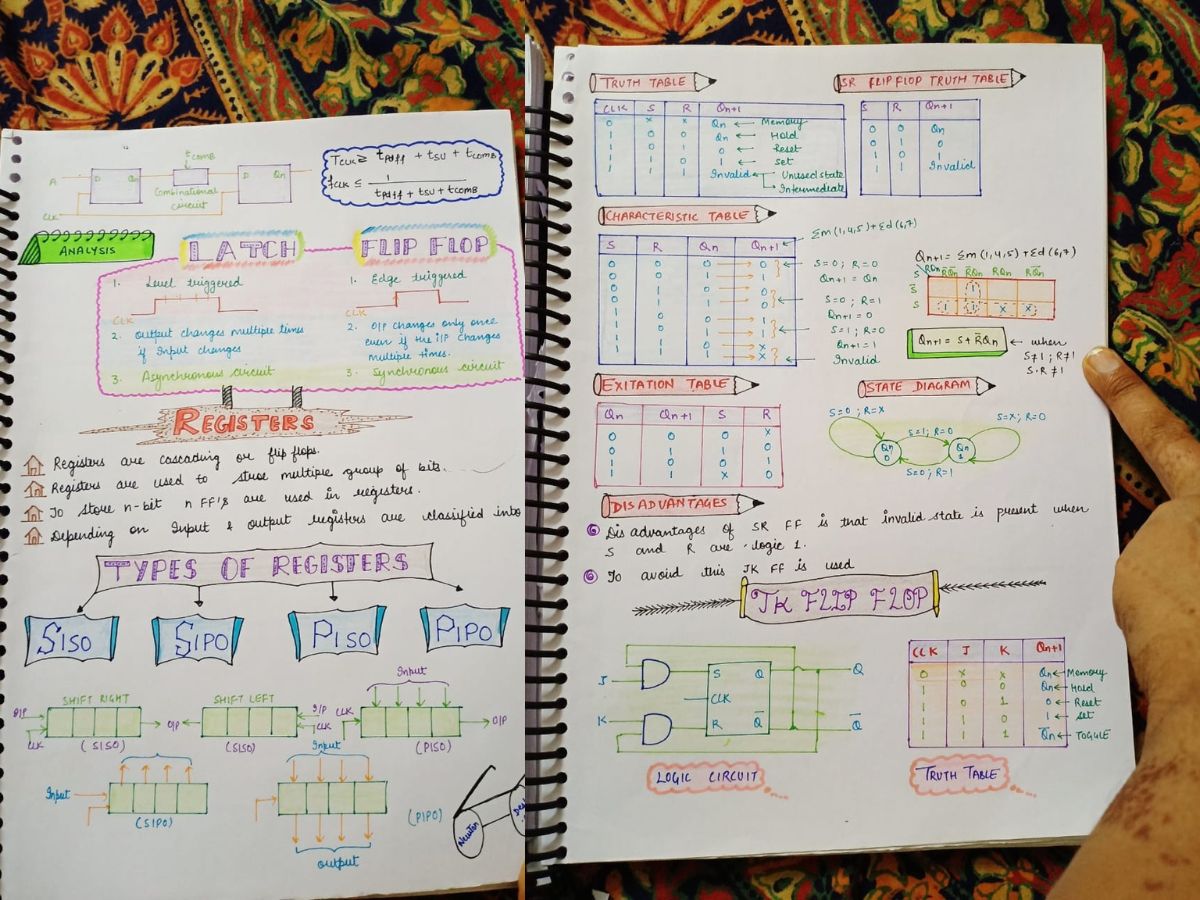 tCOMB
A
D Qn
D Qn
Combinational
circuit
CLK
TCLK ≥ tPdff + tSU + tCOMB
fCLK ≤ 1
tPdff + tSU + tCOMB
ANALYSIS
LATCH
FLIP FLOP
1. Level triggered
CLK
2. Output changes multiple times
if Input changes
3. Asynchronous circuit
1. Edge triggered
CLK
2. O/P changes only once
even if the i/P changes
multiple times.
3. Synchronous circuit
REGISTERS
Registers are cascading or flip flops.
Registers are used to stroe multiple group of bits.
To store n-bit n FF's are used in registers.
Depending on Input & output registers are classified into
TYPES OF REGISTERS
SISO
SIPO
PISO
PIPO
SHIFT RIGHT
CLK
O/P
(SISO)
SHIFT LEFT
CLK
(SISO)
Input
CLK
O/P
(PISO)
Input
(SIPO)
Input
output
(PIPO)
Newton
TRUTH TABLE
CLK S R Qn+1
0 x x Qn ← Memory
1 0 0 Qn ← Hold
1 0 1 0 ← Reset
1 1 0 1 ← set
1 1 1 Invalid ← Unused state
Intermediate
SR FLIP FLOP TRUTH TABLE
S R Qn+1
0 0 Qn
0 1 0
1 0 1
1 1 Invalid
CHARACTERISTIC TABLE
S R Qn Qn+1
0 0 0 → 0
0 0 1 → 1
0 1 0 → 0
0 1 1 → 0
1 0 0 → 1
1 0 1 → 1
1 1 0 → x
1 1 1 → x
Σm(1,4,5)+Σd(6,7)
S=0 ; R=0
Qn+1 = Qn
S=0 ; R=1
Qn+1 = 0
S=1 ; R=0
Qn+1 = 1
Invalid
Qn+1 = Σm(1,4,5)+Σd(6,7)
S RQn R̄Q̄n R̄Qn RQn RQ̄n
S̄ 1
S 1 1 x x
Qn+1 = S+R̄Qn ← when
S≠1 ; R≠1
S.R ≠1
EXITATION TABLE
Qn Qn+1 S R
0 0 0 x
0 1 1 0
1 0 0 1
1 1 x 0
STATE DIAGRAM
S=0 ; R=x
S=1; R=0
S=x; R=0
Qn
0
Qn
1
S=0 ; R=1
DISADVANTAGES
Dis advantages of SR FF is that invalid state is present when
S and R are logic 1.
To avoid this JK FF is used
JK FLIP FLOP
J
K
S Q
CLK
R Q̄
Q
Q̄
LOGIC CIRCUIT
CLK J K Qn+1
0 x x Qn ← Memory
1 0 0 Qn ← Hold
1 0 1 0 ← Reset
1 1 0 1 ← set
1 1 1 Q̄n ← TOGGLE
TRUTH TABLE